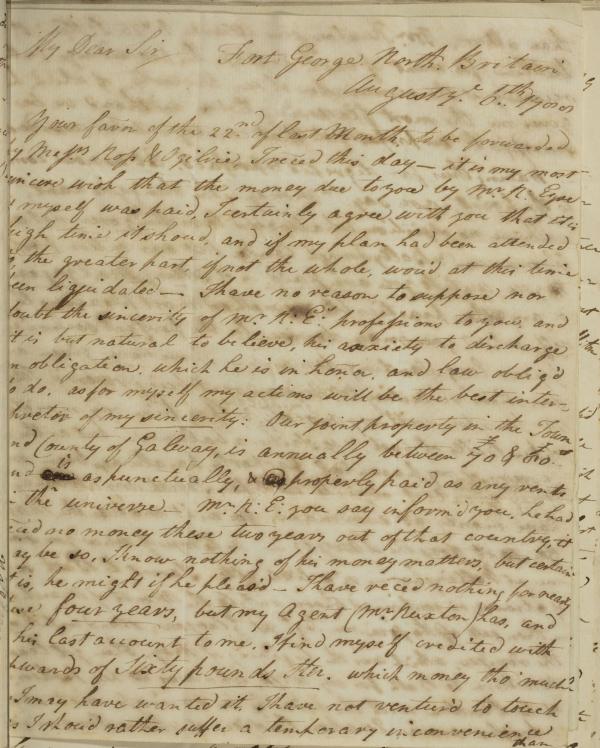 My Dear Sir,
Fort George North Britain
August ye 6th
Your favor of the 22nd of last Month, to be forwarded
Messrs Ross & Ogilvie, I reced this day — it is my most
sincere wish that the money due to you by Mr R. Eyre
myself was paid, I certainly agree with you that it is
high time it shoud, and if my plan had been attended
the greater part, if not the whole, woud at this time
been liquidated — I have no reason to suppose nor
doubt the sincerity of Mr R: Es professions to you, and
it is but natural to believe, his anxiety to discharge
an obligation, which he is in honor, and law oblig'd
to do, as for myself my actions will be the best inter-
preter of my sincerity: Our joint property in the Town
and County of Galway, is annually between £70 & 80
and is as punctually, & properly paid as any rents
in the universe — Mr R: E: you say inform'd you, he had
reced no money these two years out of that country, it
may be so, I know nothing of his money matters, but certain
it is, he might if he pleas'd — I have reced nothing for nearly
these four years, but my Agent (Mr Ruxton) has, and
his last account to me, I find myself credited with
upwards of Sixty pounds Str. which money tho' much
I may have wanted it, I have not ventur'd to touch
as I shoud rather suffer a temporary inconvenience
than